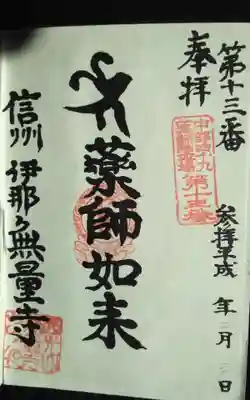 第十三番
奉拝
参拝平成 年 月 日
第十三番
薬師如来
信州 伊那 無量寺